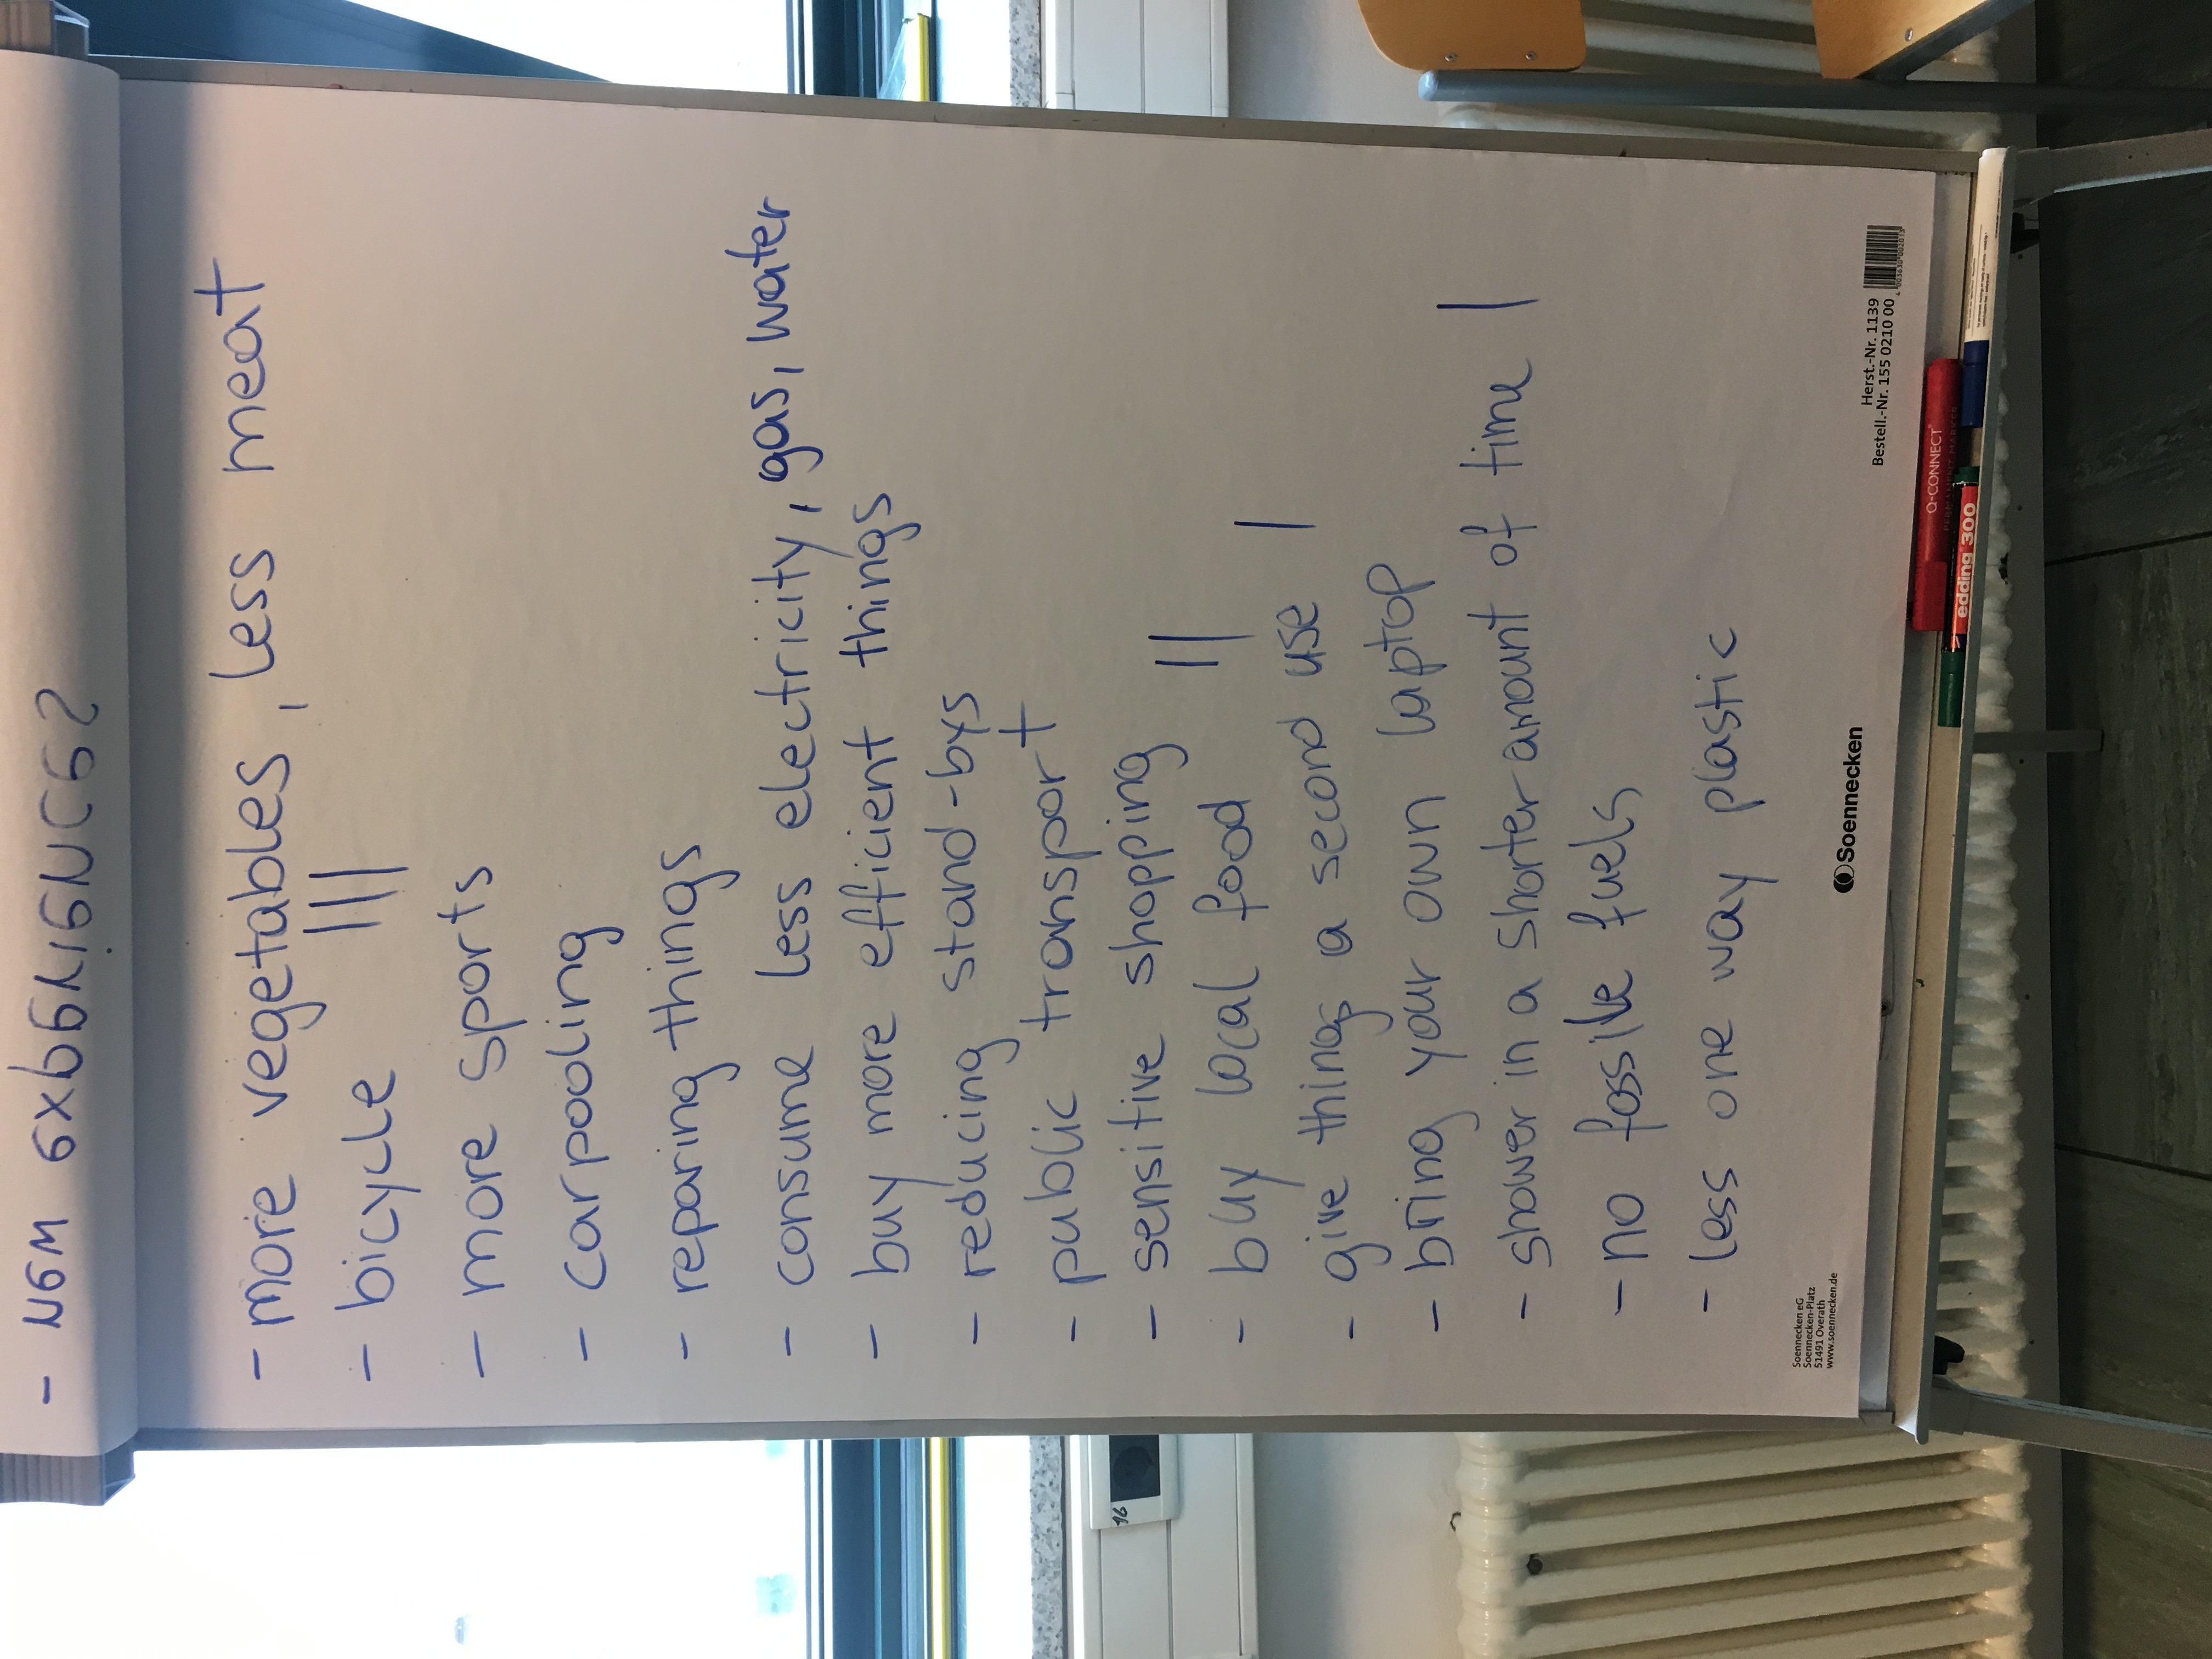 - new experiences
- more vegetables, less meat
- bicycle |||
- more sports
- carpooling
- reparing things
- consume less electricity, gas, water
- buy more efficient things
- reducing stand-bys
- public transport
- sensitive shopping
- buy local food ||
- give things a second use |
- bring your own laptop
- shower in a shorter amount of time |
- no fossile fuels
- less one way plastic
16
Soennecken eG
Soennecken-Platz
51491 Overath
www.soennecken.de
Soennecken
Herst.-Nr. 1139
Bestell.-Nr. 155 0210 00
4 003630 002013
Q-CONNECT
PERMANENT MARKER
edding 300